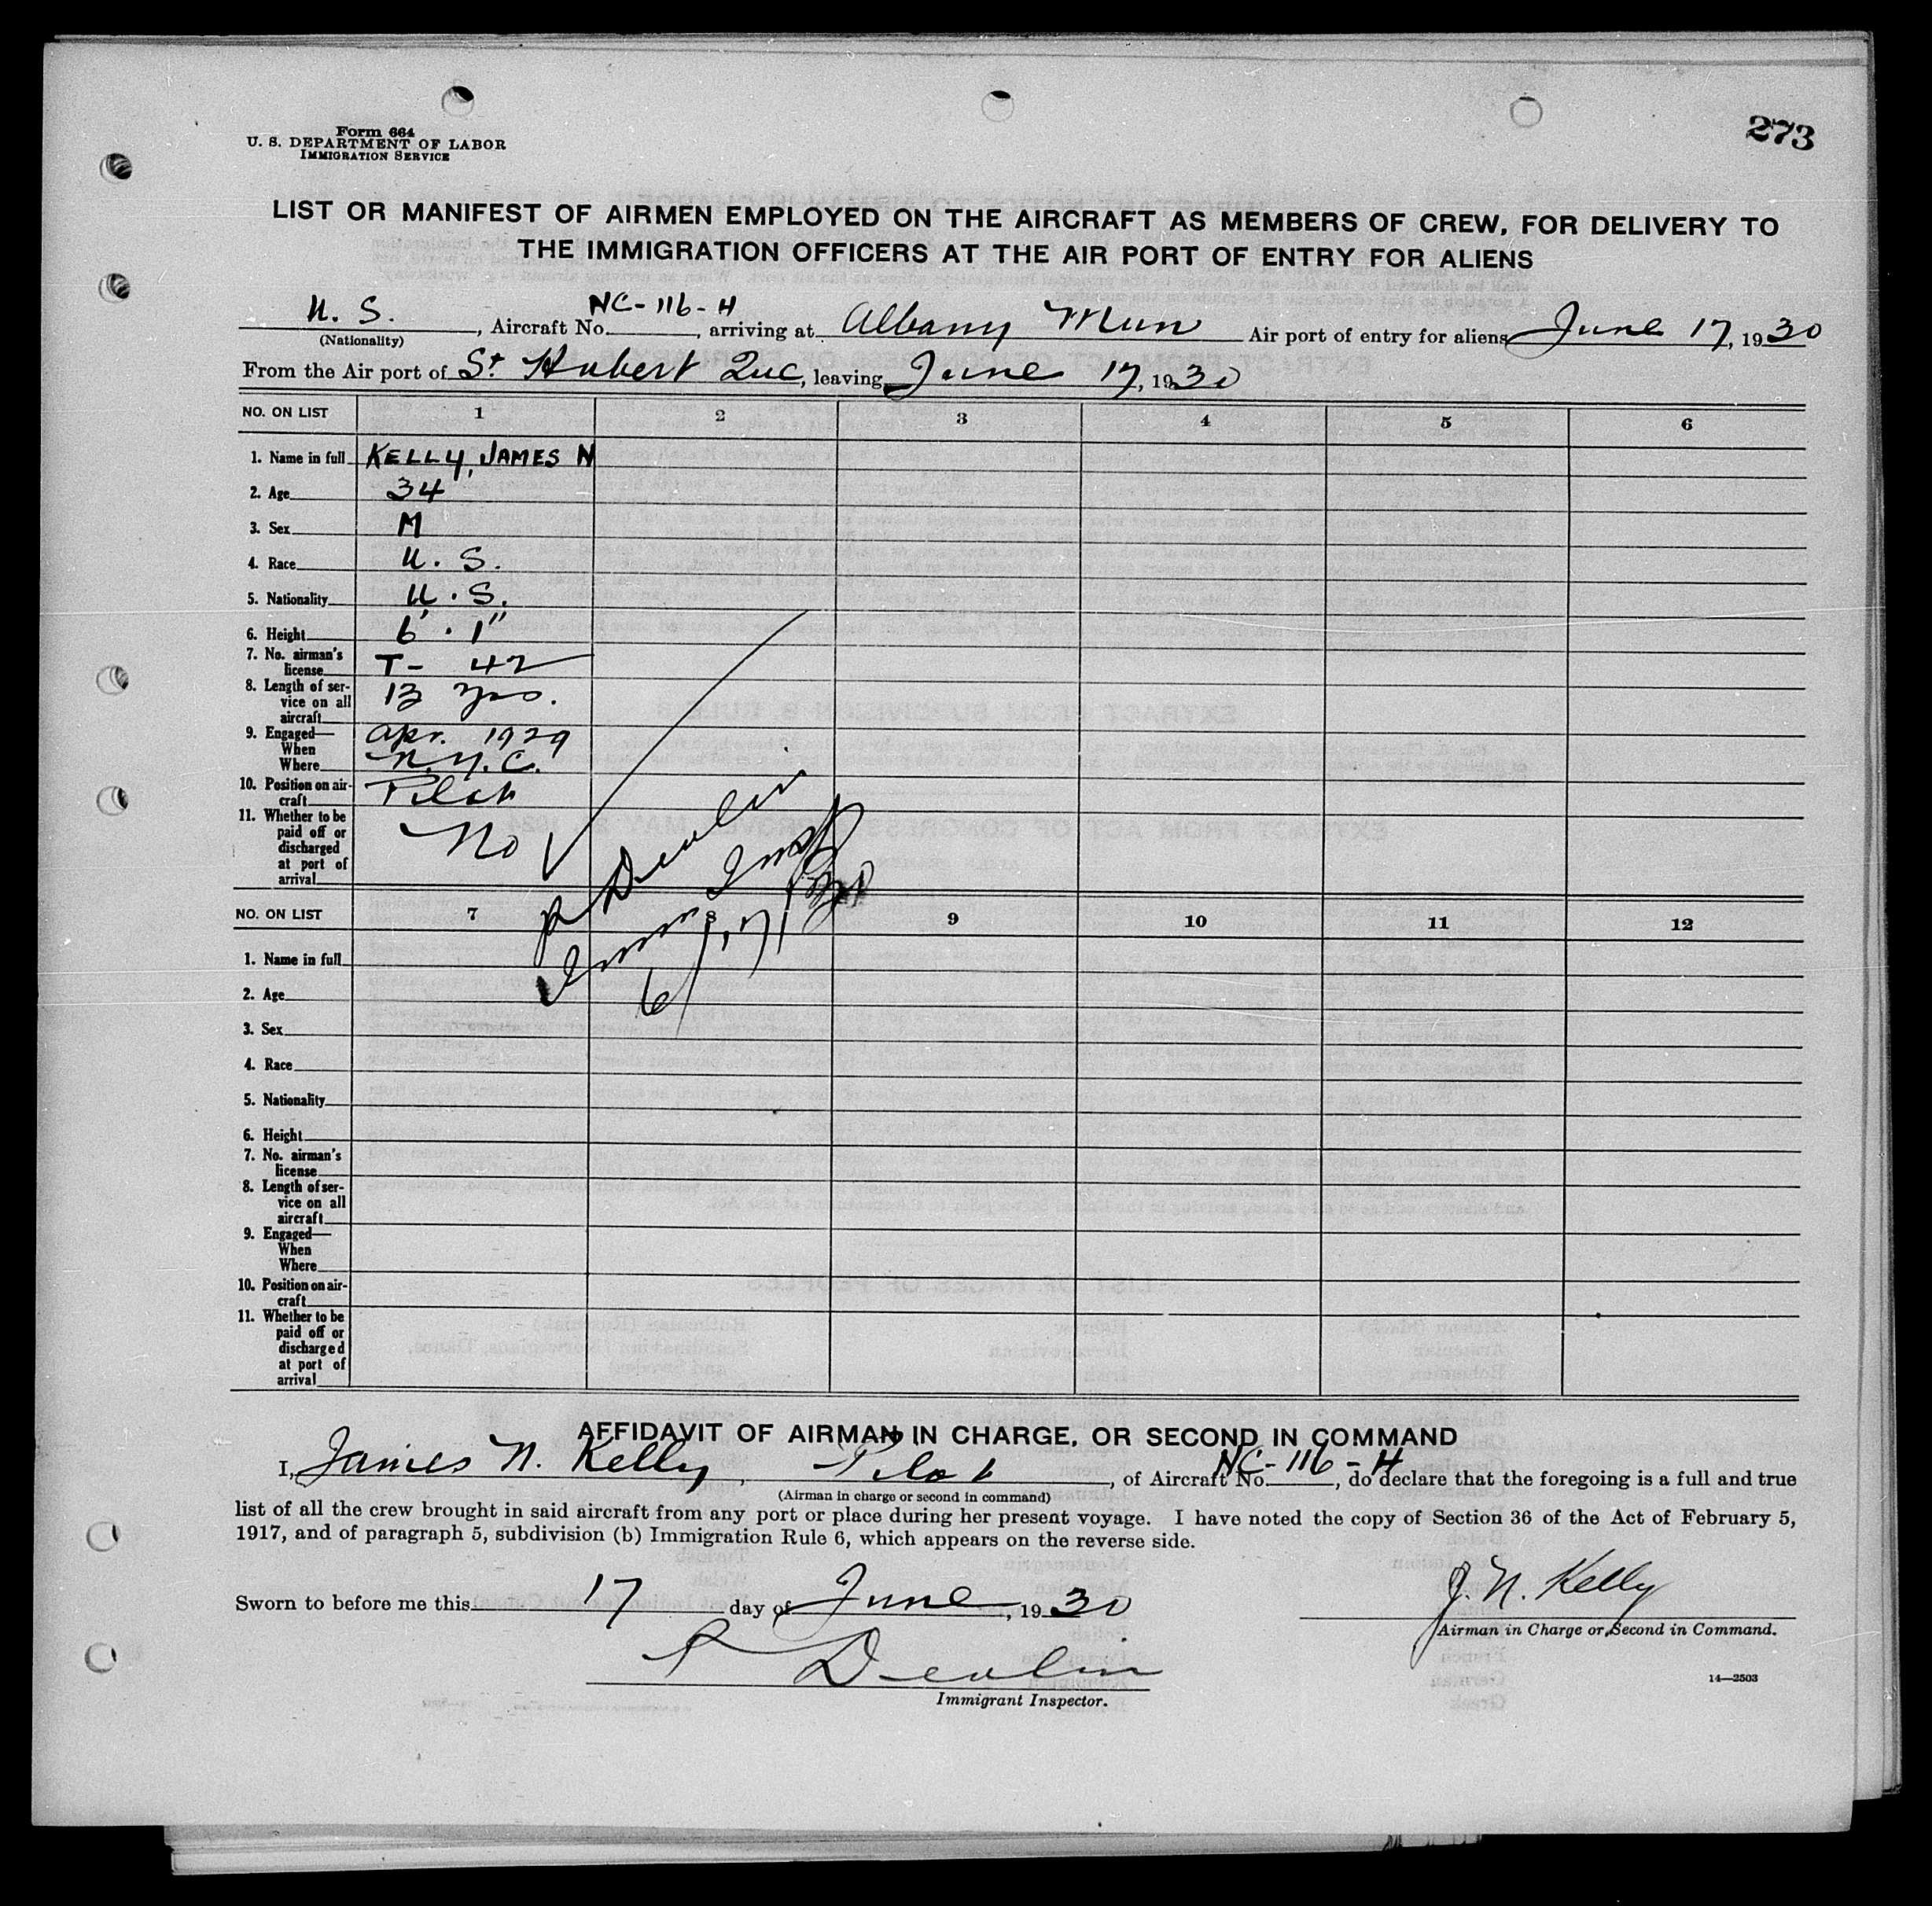 273
Form 664
U. S. DEPARTMENT OF LABOR
IMMIGRATION SERVICE
LIST OR MANIFEST OF AIRMEN EMPLOYED ON THE AIRCRAFT AS MEMBERS OF CREW, FOR DELIVERY TO
THE IMMIGRATION OFFICERS AT THE AIR PORT OF ENTRY FOR ALIENS
U. S. , Aircraft No. NC-116-H , arriving at Albany Mun Air port of entry for aliens June 17, 1930
(Nationality)
From the Air port of St Hubert Que, leaving June 17, 1930
NO. ON LIST 1 2 3 4 5 6
1. Name in full KELLY, JAMES N
2. Age 34
3. Sex M
4. Race U. S.
5. Nationality U. S.
6. Height 6' . 1"
7. No. airman's
license T- 42
8. Length of ser-
vice on all
aircraft 13 yrs.
9. Engaged—
When Apr. 1929
Where N.Y.C.
10. Position on air-
craft Pilot
11. Whether to be
paid off or
discharged
at port of
arrival No
P Devlin
Imm Inst
6/17/30
NO. ON LIST 7 8 9 10 11 12
1. Name in full
2. Age
3. Sex
4. Race
5. Nationality
6. Height
7. No. airman's
license
8. Length of ser-
vice on all
aircraft
9. Engaged—
When
Where
10. Position on air-
craft
11. Whether to be
paid off or
discharged
at port of
arrival
AFFIDAVIT OF AIRMAN IN CHARGE, OR SECOND IN COMMAND
I, James N. Kelly , Pilot , of Aircraft No. NC-116-H , do declare that the foregoing is a full and true
(Airman in charge or second in command)
list of all the crew brought in said aircraft from any port or place during her present voyage. I have noted the copy of Section 36 of the Act of February 5,
1917, and of paragraph 5, subdivision (b) Immigration Rule 6, which appears on the reverse side.
Sworn to before me this 17 day of June, 1930
J. N. Kelly
Airman in Charge or Second in Command.
P Devlin
Immigrant Inspector.
14—2503